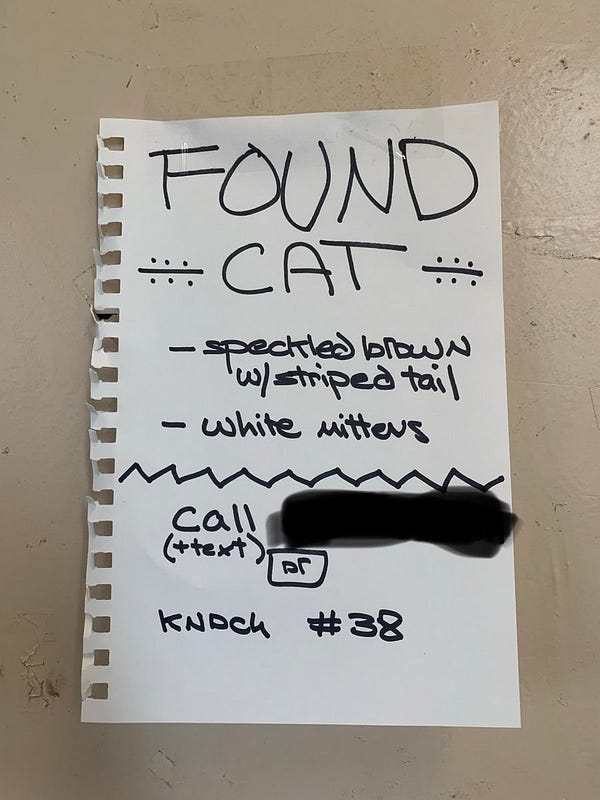 FOUND
CAT
- speckled brown
w/ striped tail
- white mittens
call
(+text)
or
KNOCK #38